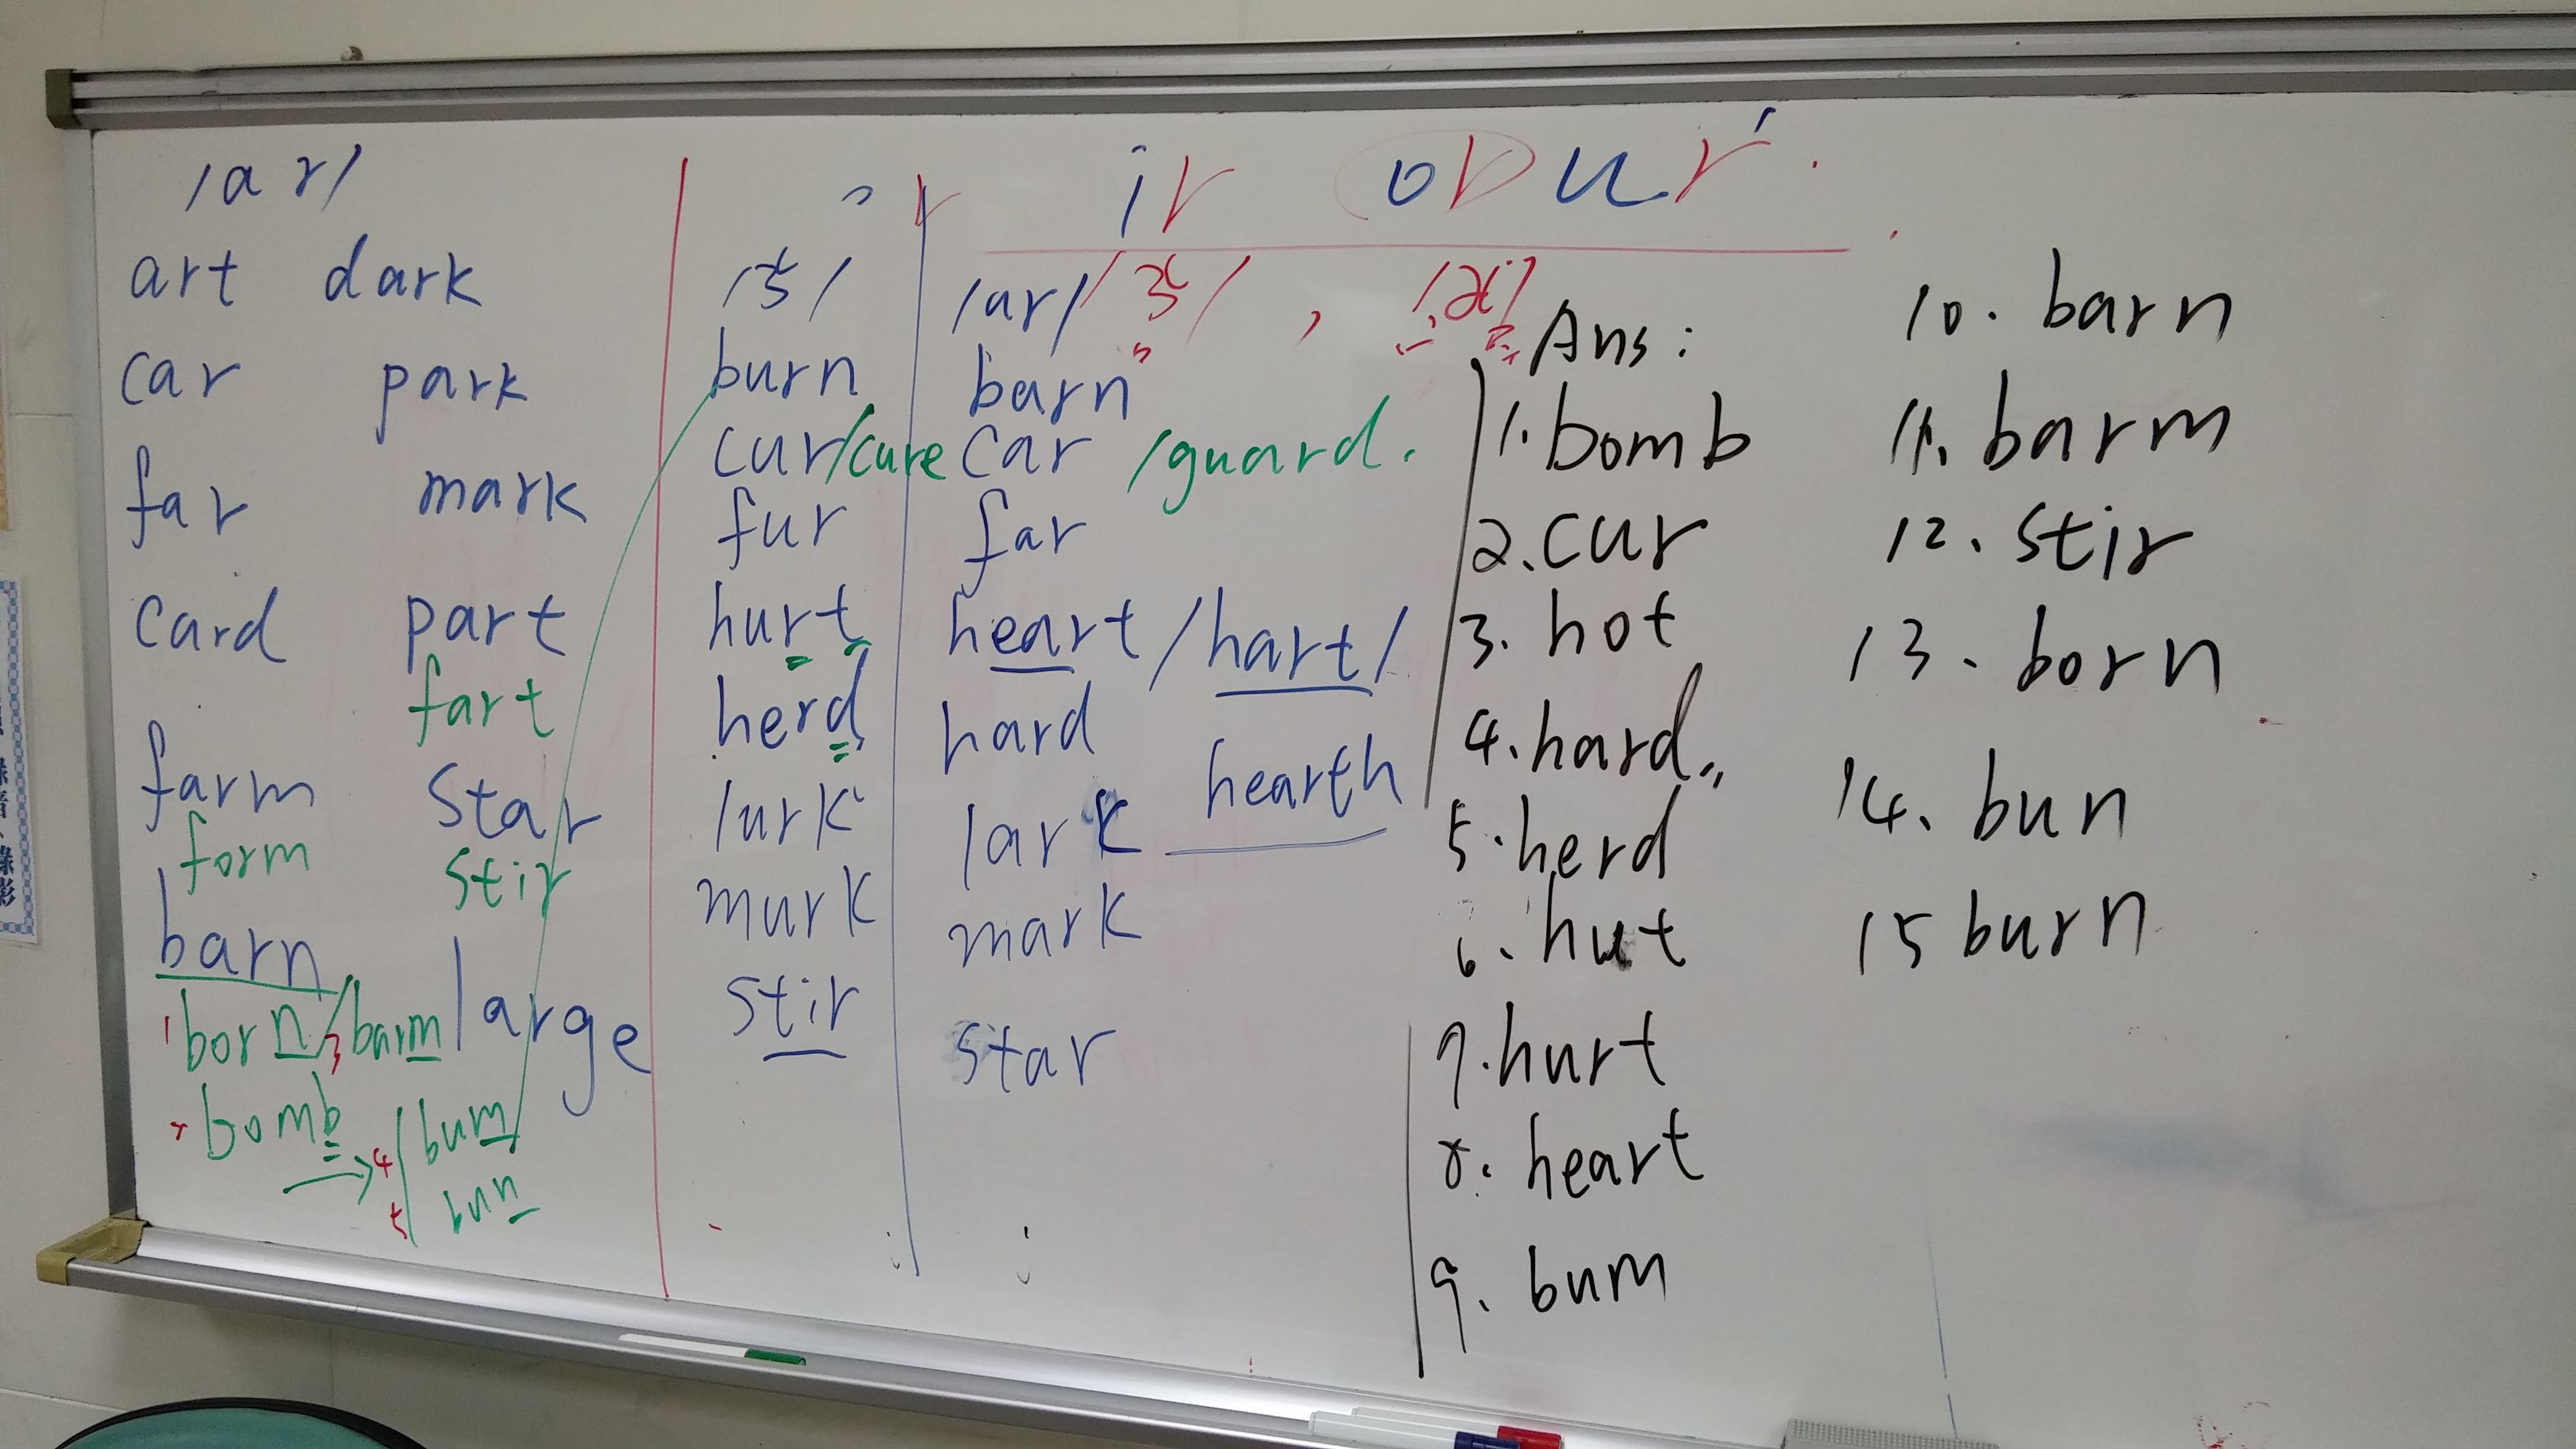 /ar/
art dark
car park
far mark
card part
fart
farm star
form stir
barn
large
1 born / 3 barm
bomb
→ 4 / bum
5 bun
ir or ur
/ɝ/
burn
cur/cure
fur
hurt
herd
lurk
murk
stir
/ar/ /ɝ/ ,
barn
car /guard.
far
heart /hart/
hard
hearth
lark
mark
star
Ans:
1. bomb
2. cur
3. hot
4. hard
5. herd
6. hut
7. hurt
8. heart
9. bum
10. barn
11. barm
12. stir
13. born
14. bun
15 burn